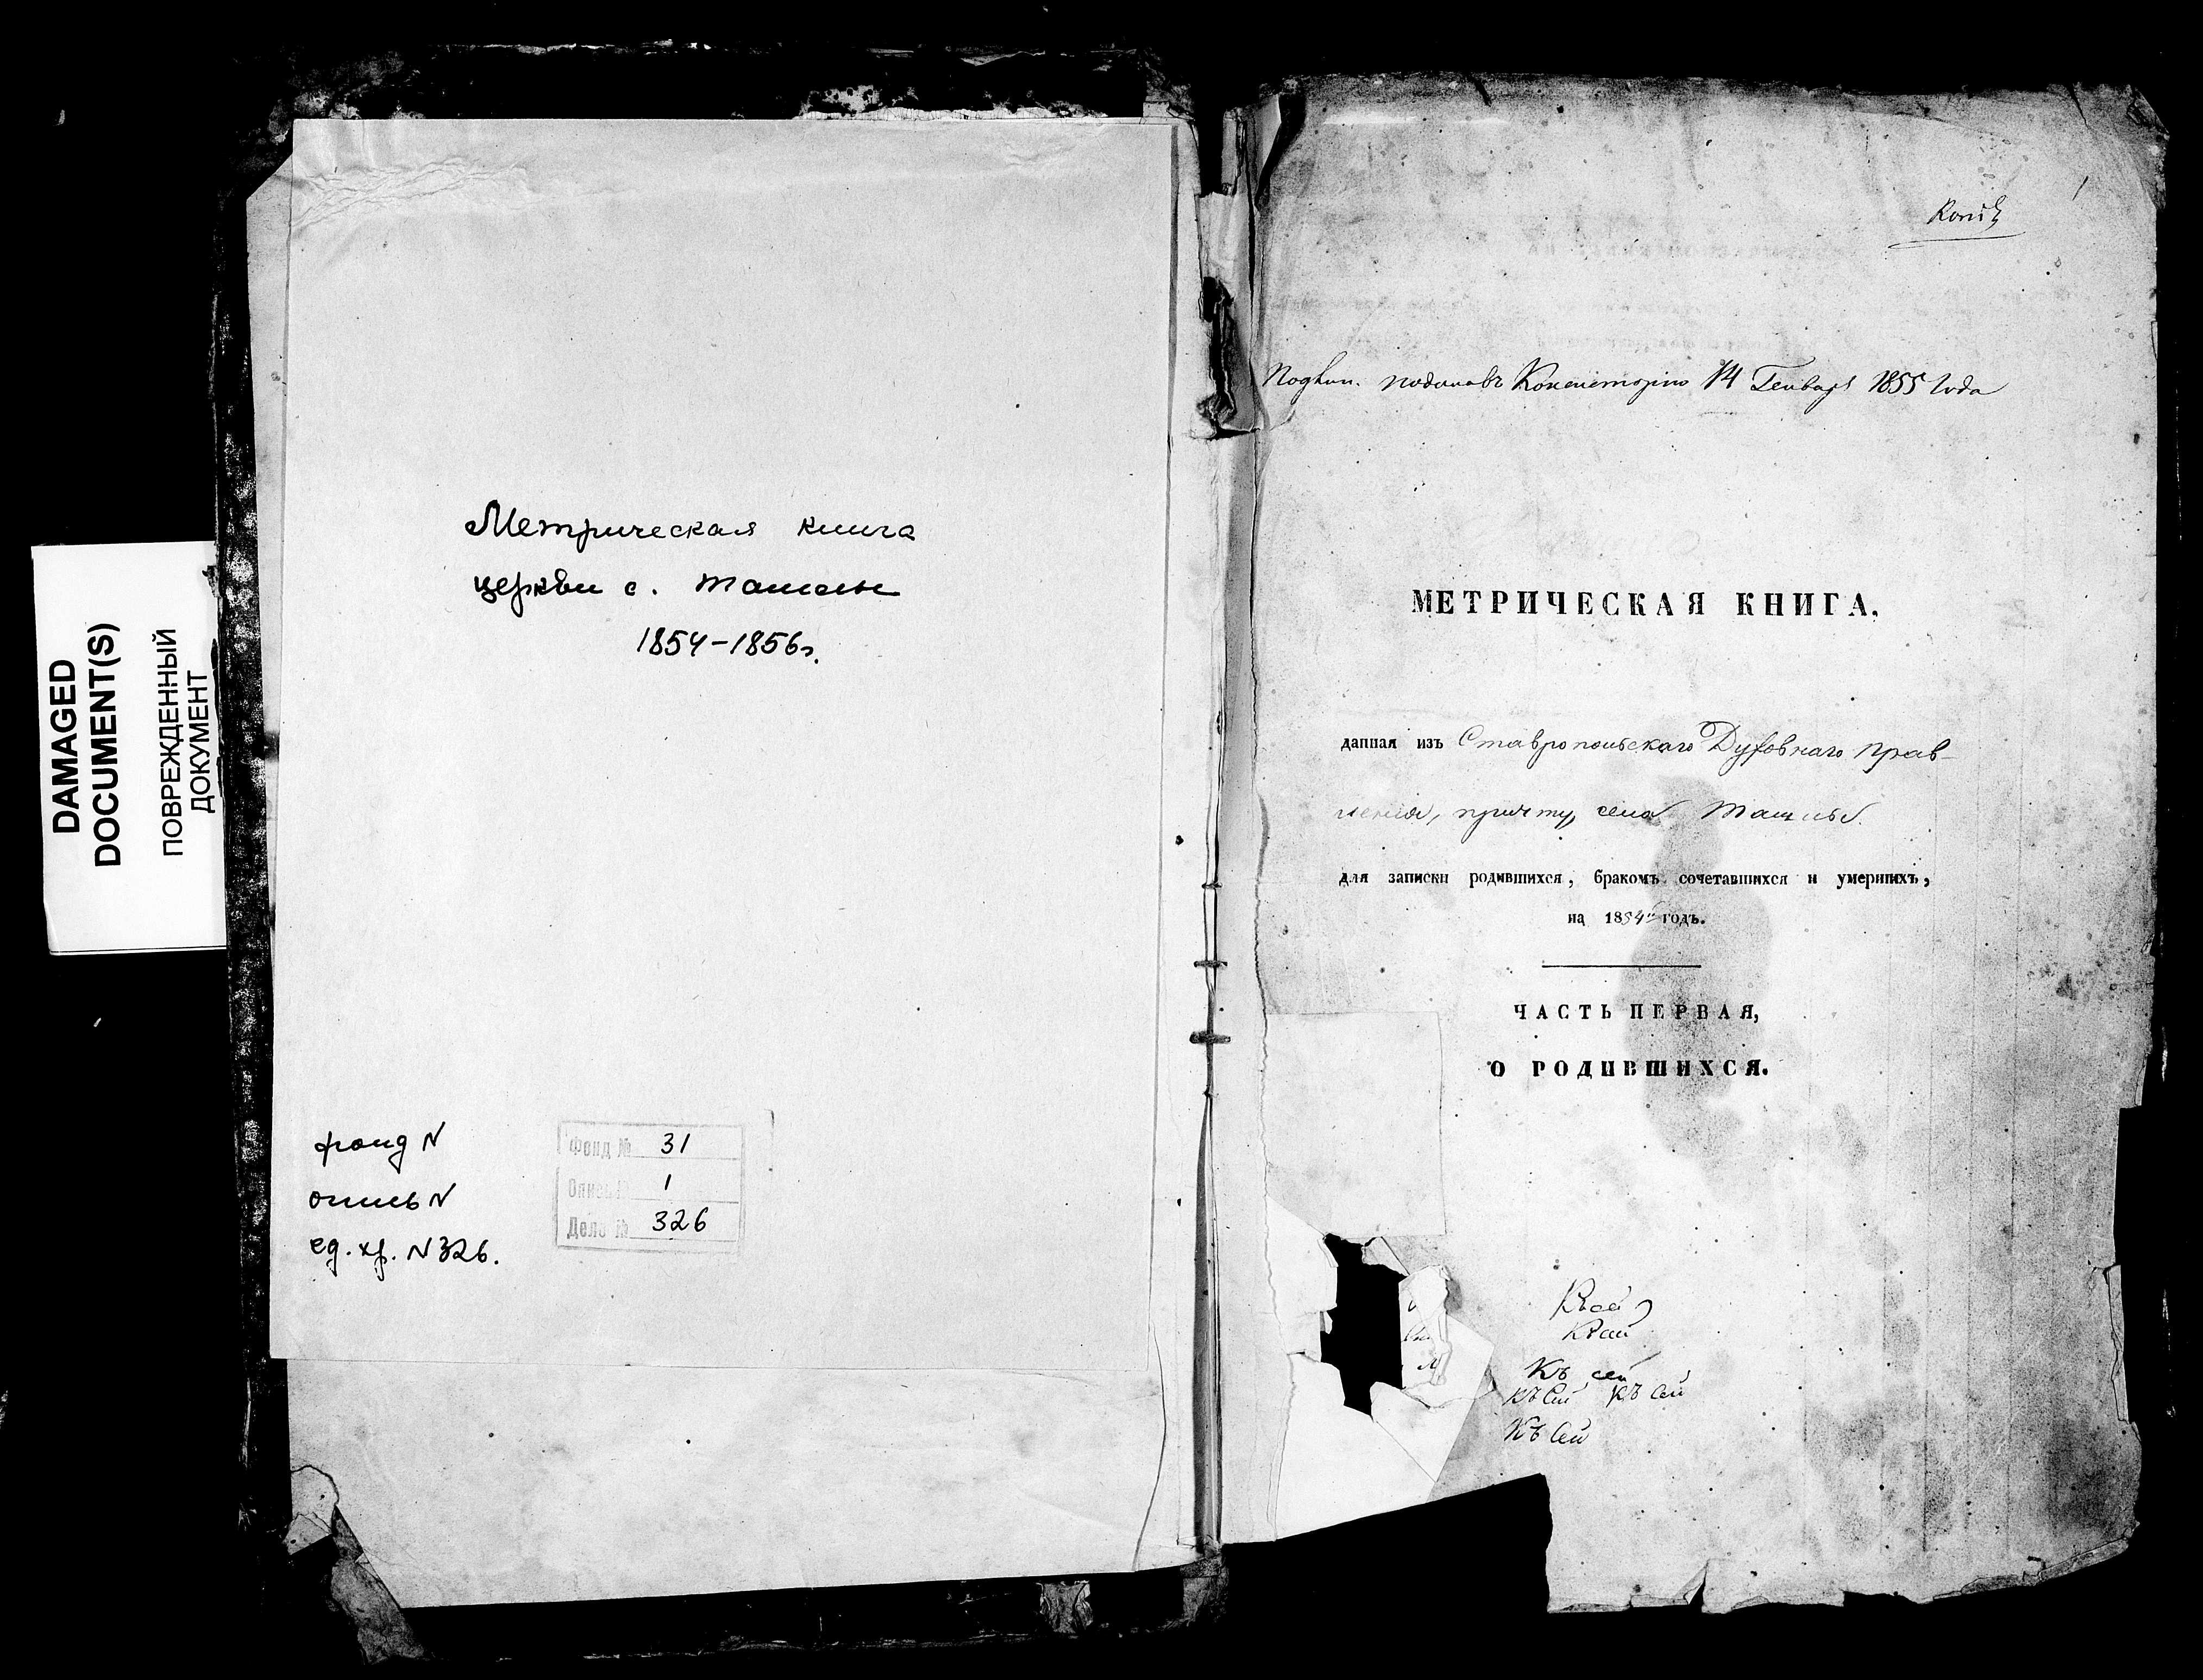 DAMAGED
DOCUMENT(S)
ПОВРЕЖДЕННЫЙ
ДОКУМЕНТ
Метрическая книга
церкви с. Ташелы
1854-1856г.
фонд N
опись N
ед. хр. N 326.
Фонд № 31
Опись № 1
Дело № 326
1
Копія
Консисторію 14 Генваря 1855 Года
МЕТРИЧЕСКАЯ КНИГА,
данная изъ Ставропольскаго Духовнаго Прав-
ленія, причту села
для записки родившихся, бракомъ сочетавшихся и умершихъ,
на 1854й годъ.
ЧАСТЬ ПЕРВАЯ,
О РОДИВШИХСЯ.
Къ сей
Къ сей Къ сей
Къ сей